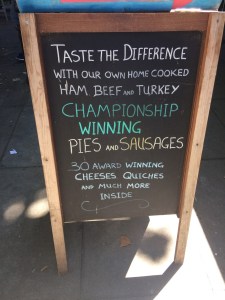 TASTE THE DIFFERENCE
WITH OUR OWN HOME COOKED
HAM BEEF AND TURKEY
CHAMPIONSHIP
WINNING
PIES AND SAUSAGES
30 AWARD WINNING
CHEESES QUICHES
AND MUCH MORE
INSIDE